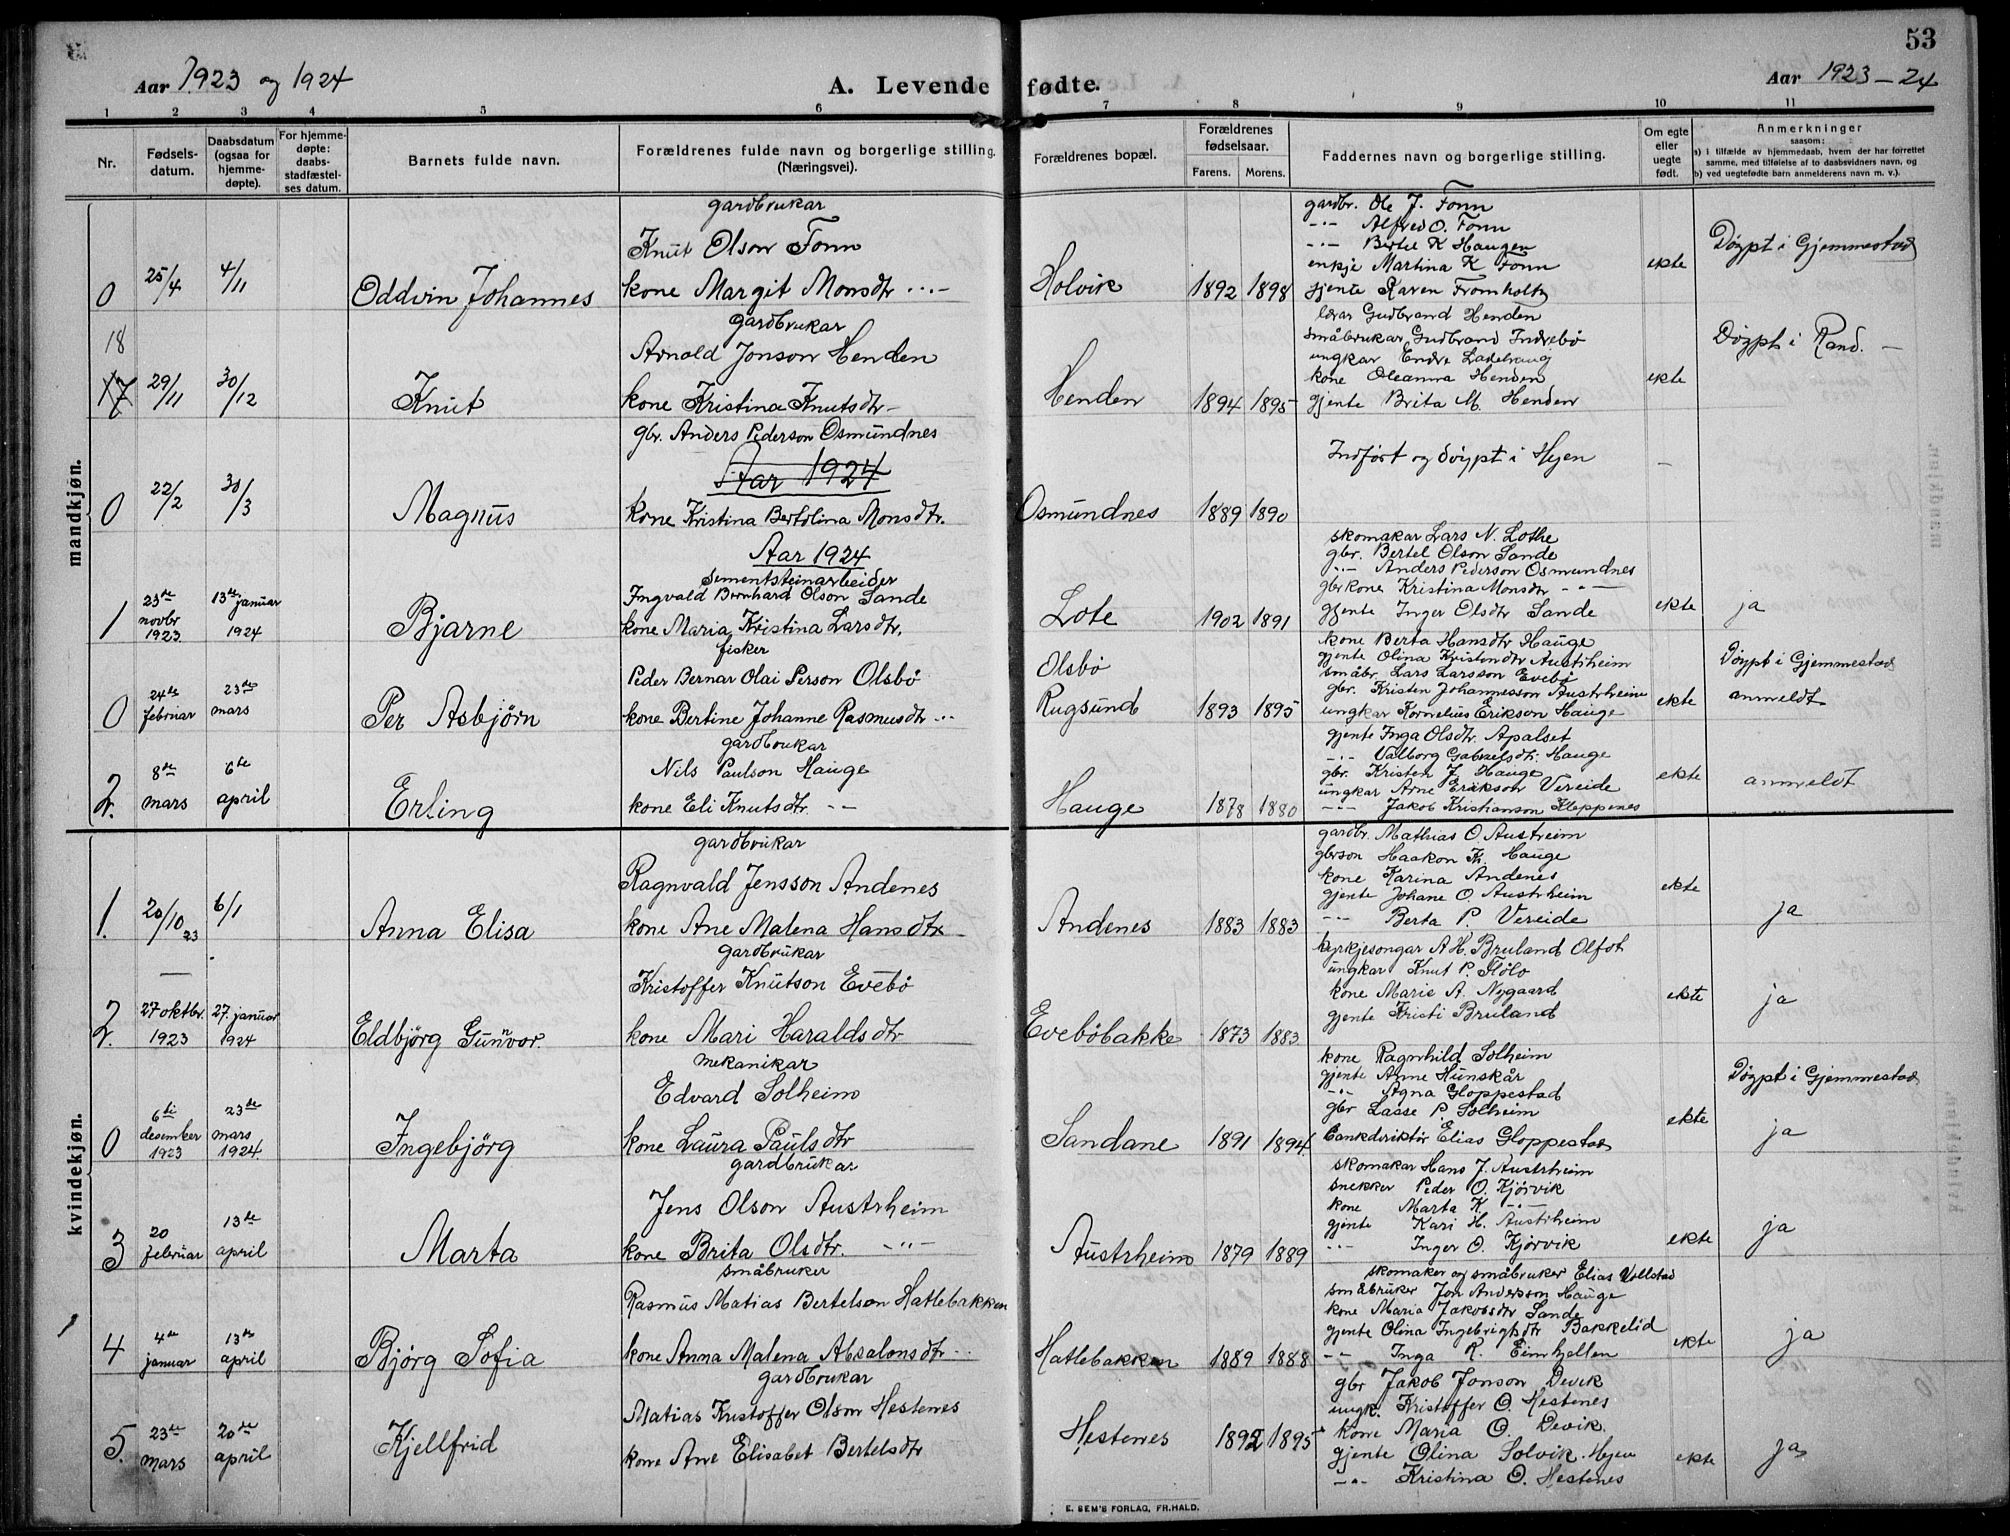 53
Aar 1923 og 1924
A. Levende fødte.
Aar 1923-24
1 2 3 4 5 6 7 8 9 10 11
Nr.
Fødsels-
datum.
Daabsdatum
(ogsaa for
hjemme-
døpte).
For hjemme-
døpte:
daabs-
stadfæstel-
ses datum.
Barnets fulde navn.
Forældrenes fulde navn og borgerlige stilling.
(Næringsvei).
Forældrenes bopæl.
Forældrenes
fødselsaar.
Farens. Morens.
Faddernes navn og borgerlige stilling.
Om egte
eller
uegte
født.
Anmerkninger
saasom:
a) i tilfælde av hjemmedaab, hvem der har forrettet
samme, med tilføielse af to daabsvidners navn, og
b) ved uegtefødte barn anmelderens navn m. v.).
mandkjøn.
0
25/4
4/11
Oddvin Johannes
gardbrukar
Knut Olson Fonn
kone Margit Monsdtr -..-
Holvik
1892 1898
gardbr. Ole J. Fonn
-..- Alfred O. Fonn
-..- Bertel K Haugen
enkje Martina K Fonn
gjente Karen Fromholtz
ekte
Døypt i Gjemmestad
18
17
29/11
30/12
Knut
gardbrukar
Arnold Jonson Henden
kone Kristina Knutsdtr -
Henden
1894 1895
lærar Gudbrand Henden
småbrukar Gudbrand Indrebø
ungkar Endre Ladehaug
kone Oleanna Henden
gjente Brita M. Henden
ekte
Døypt i Rand. -
0
22/2
30/3
Magnus
gbr. Anders Pederson Osmundnes
Aar 1924
kone Kristina Bertolina Monsdtr.
Osmundnes
1889 1890
Indført og døypt i Hyen
-
Aar 1924
1
23de
novbr
1923.
13de januar
1924
Bjarne
sementsteinarbeider
Ingvald Bernhard Olson Sande
kone Maria Kristina Larsdtr.
Lote
1902 1891
skomakar Lars N. Lothe
gbr. Bertel Olson Sande
-..- Anders Pederson Osmundnes
gbrkone Kristina Monsdtr -..-
gjente Inger Olsdtr Sande
ekte
ja
0
24de
februar
23de
mars
Per Asbjørn
fisker
Peder Bernar Olai Person Olsbø
kone Bertine Johanne Rasmusdtr -..-
Olsbø
Rugsund
1893 1895
kone Berta Hansdtr Hauge
gjente Olina Kristendtr Austrheim
småbr. Lars Larsson Evebø
gbr. Kristen Johannesson Austrheim
ungkar Kornelius Erikson Hauge
ekte
Døypt i Gjemmestad
anmeldt
2.
8de
mars
6te
april
Erling
gardbrukar
Nils Paulson Hauge
kone Eli Knutsdtr. -..-
Hauge
1878 1880
gjente Inga Olsdtr. Apalset
-..- Valborg Gabrielsdtr. Hauge
gbr. Kristen J. Hauge
ungkar Arne Erikson Vereide
-..- Jakob Kristianson Kleppenes
ekte
anmeldt
kvindekjøn.
1.
20/10 23
6/1
Anna Elisa
gardbrukar
Ragnvald Jensson Andenes
kone Ane Malena Hansdtr -
Andenes
1883 1883
gardbr. Mathias O. Austreim
gbrson Haakon K. Hauge
kone Karina Andenes
gjente Johane O. Austrheim
-..- Berta P. Vereide
ekte
ja
2.
27 oktbr.
1923
27. januar
1924
Eldbjörg Gunnvor.
gardbrukar
Kristoffer Knutson Evebø
kone Mari Haraldsdtr
Evebøbakke
1873 1883
kyrkjesongar A H. Bruland Olfot
ungkar Knut P. Flølo
kone Marie A. Nygaard
gjente Kristi Bruland
ekte
ja
0
6ti
desember
1923
23de
mars
1924.
Ingebjörg
mekanikar
Edvard Solheim
kone Laura Paulsdtr
Sandane
1891 1894
kone Ragnhild Solheim
gjente Anne Hunskår
-..- Agna Gloppestad
gbr Lasse P. Solheim
bankdirektör Elias Gloppestad
ekte
Døypt i Gjemmestad
ja
3
20
februar
13de
april
Marta
gardbrukar
Jens Olson Austrheim
kone Brita Olsdtr. -..-
Austrheim
1879 1889
skomakar Hans J. Austrheim
snekker Peder O. Kjørvik
kone Marta K. -..-
gjente Kari H. Austrheim
-..- Inger O. Kjørvik
ekte
ja
4
4de
januar
13de
april
Bjørg Sofia
småbruker
Rasmus Matias Bertelson Hatlebakken
kone Anna Malena Absalonsdtr -..-
Hatlebakken
1889 1888
skomaker og småbruker Elias Vollstad
småbruker Jon Andersson Hauge
kone Maria Jakobsdtr Sande
gjente Olina Ingebrigtsdtr Bakkelid
-..- Inga R. Eimhjellen
ekte
ja
5.
23de
mars
20de
april
Kjellfrid
gardbrukar
Matias Kristoffer Olson Hestenes
kone Ane Elisabet Bertelsdtr
Hestenes
1892 1895
gbr Jakob Jonson Devik
ungk. Kristoffer O. Hestenes
kone Maria O. Devik.
gjente Olina Solvik. Hyen
-..- Kristina O. Hestenes
ekte
ja
E. SEM'S FORLAG, FR.HALD.